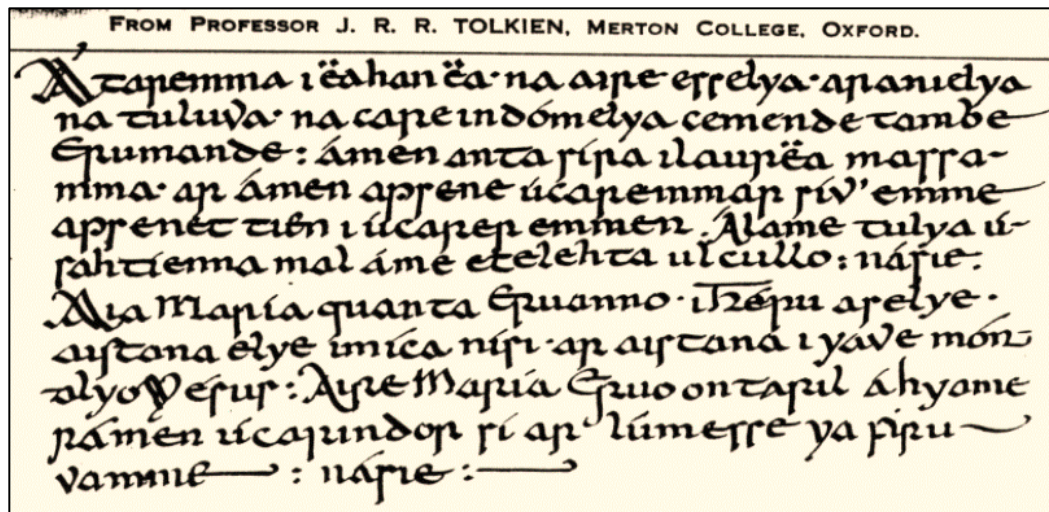 FROM PROFESSOR J. R. R. TOLKIEN, MERTON COLLEGE, OXFORD.
Átaremma i ëa han ëa· na aire esselya· aranielya
na tuluva· na care indómelya cemende tambe
Erumande: ámen anta síra ilaurëa massa-
mma· ar ámen apsene úcaremmar sív' emme
apsenet tien i úcarer emmen. Álame tulya ú-
sahtienna mal áme etelehta ulcullo: násie:
Aia María quanta Eruanno· i Héru aselye·
aistana elye imíca nísi· ar aistana i yáve món-
alyo Yésus: Aire María Eruo ontaril á hyame
rámen úcarindor sí ar lúmesse ya firu-
vamme — : násie : —